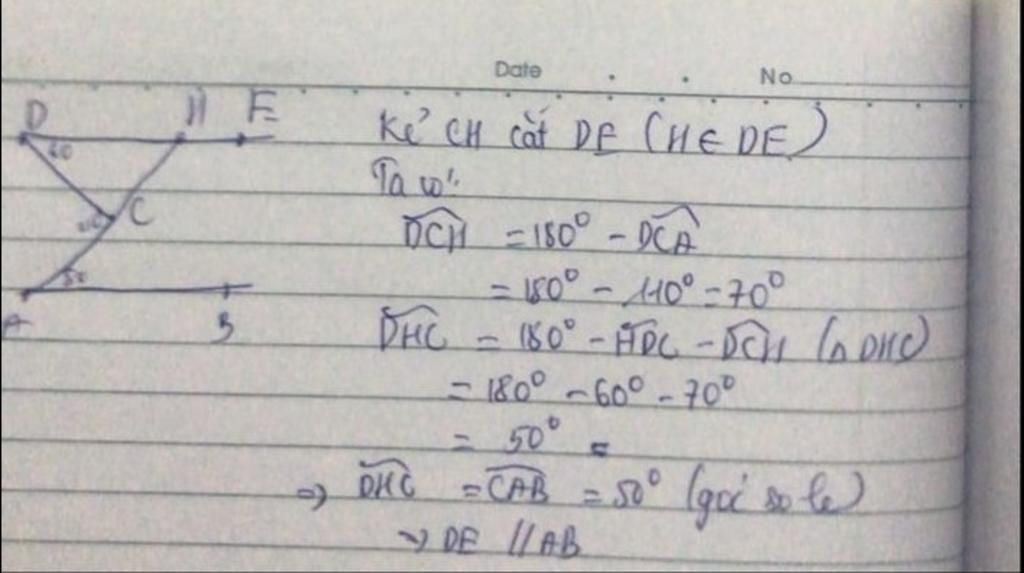 Date No
D H E
60
C
110
50
A B
Kẻ CH cắt DE (H ∈ DE)
Ta có:
$\widehat{DCH}$ = 180° - $\widehat{DCA}$
= 180° - 110° = 70°
$\widehat{DHC}$ = 180° - $\widehat{HDC}$ - $\widehat{DCH}$ (Δ DHC)
= 180° - 60° - 70°
= 50° =
=> $\widehat{DHC}$ = $\widehat{CAB}$ = 50° (góc so le)
=> DE // AB